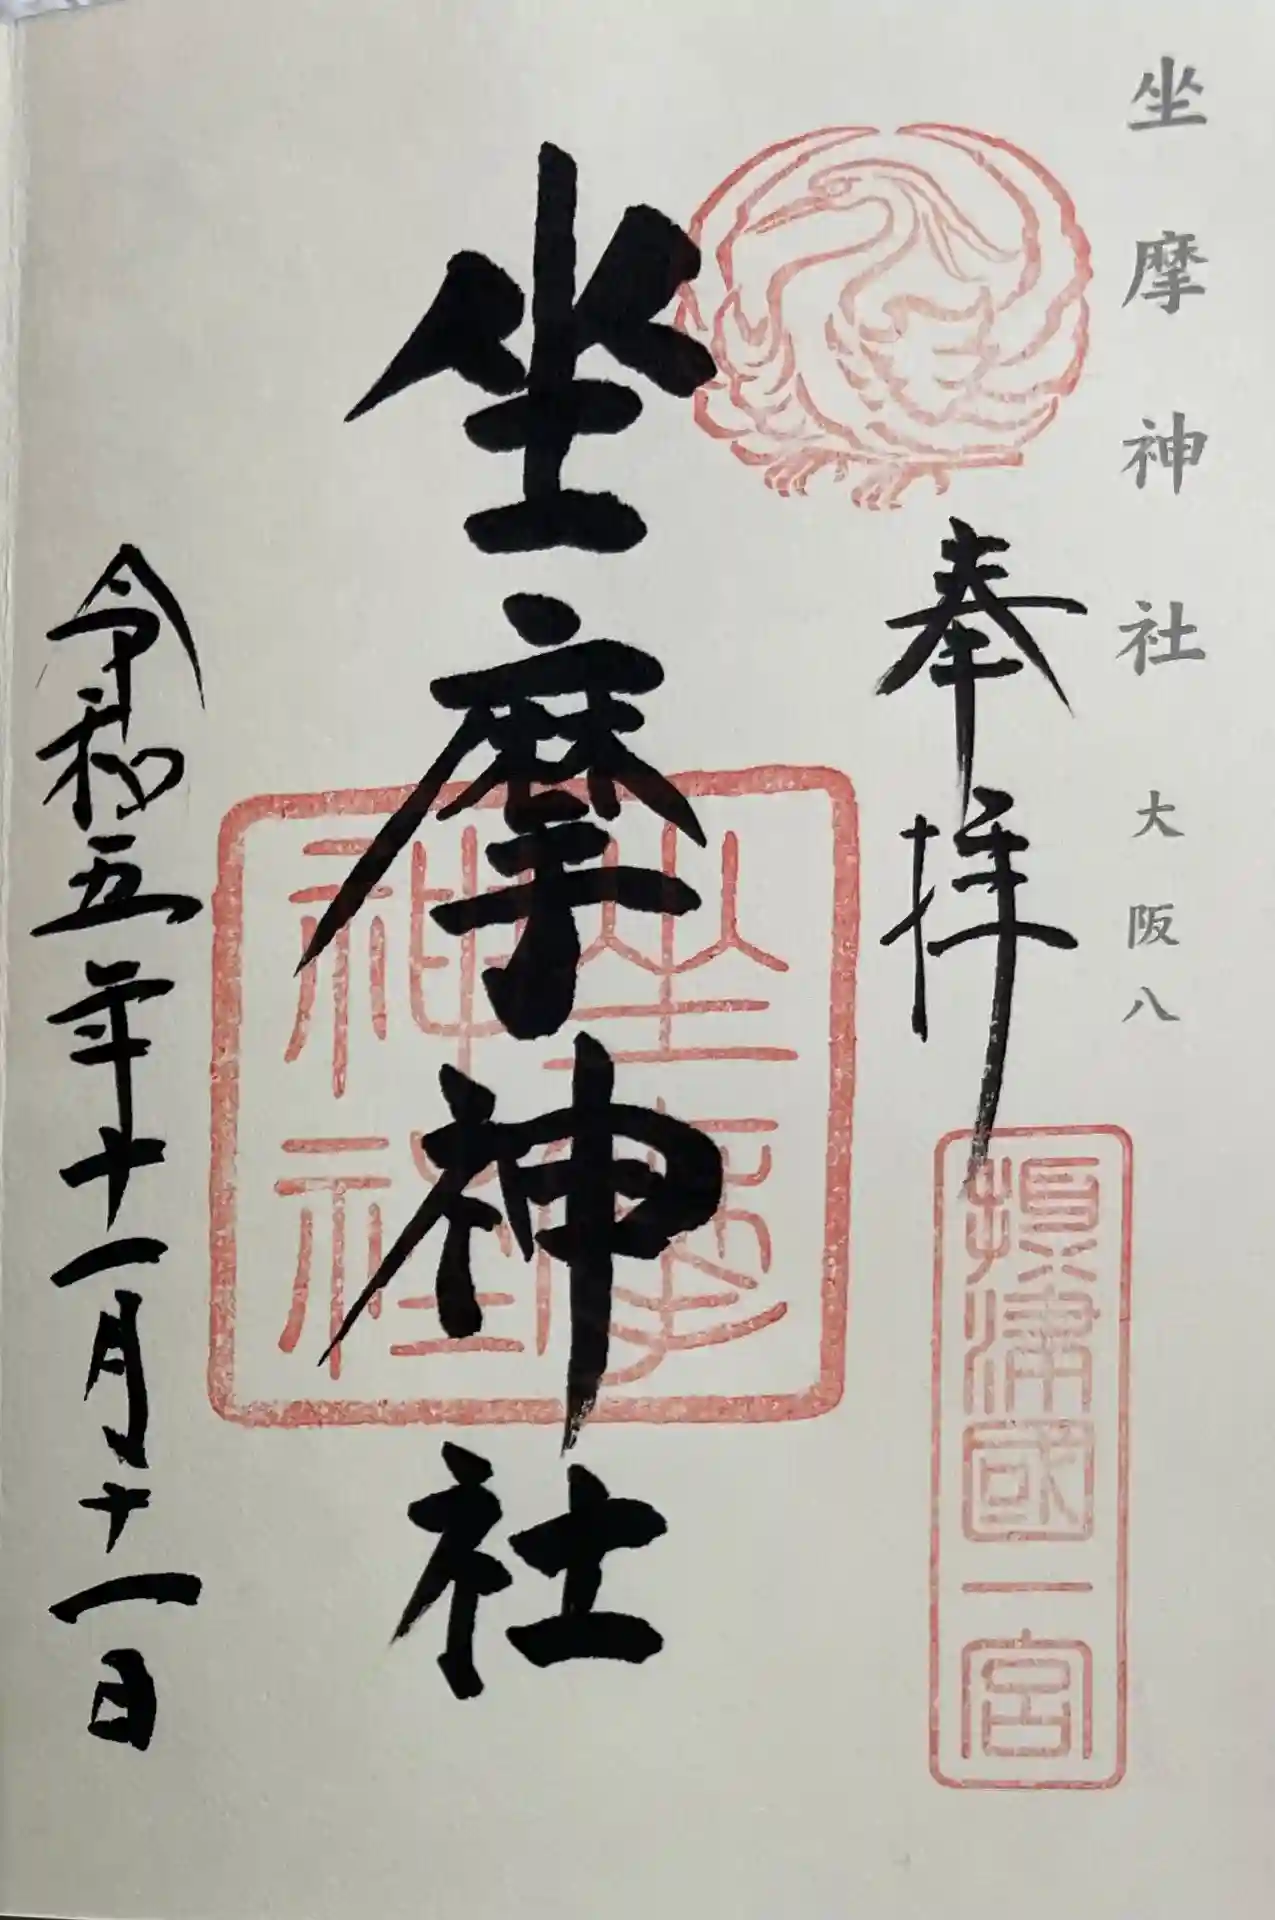 坐摩神社 大阪八
奉拝
摂津國一宮
坐摩神社
坐摩神社
令和五年十一月十一日